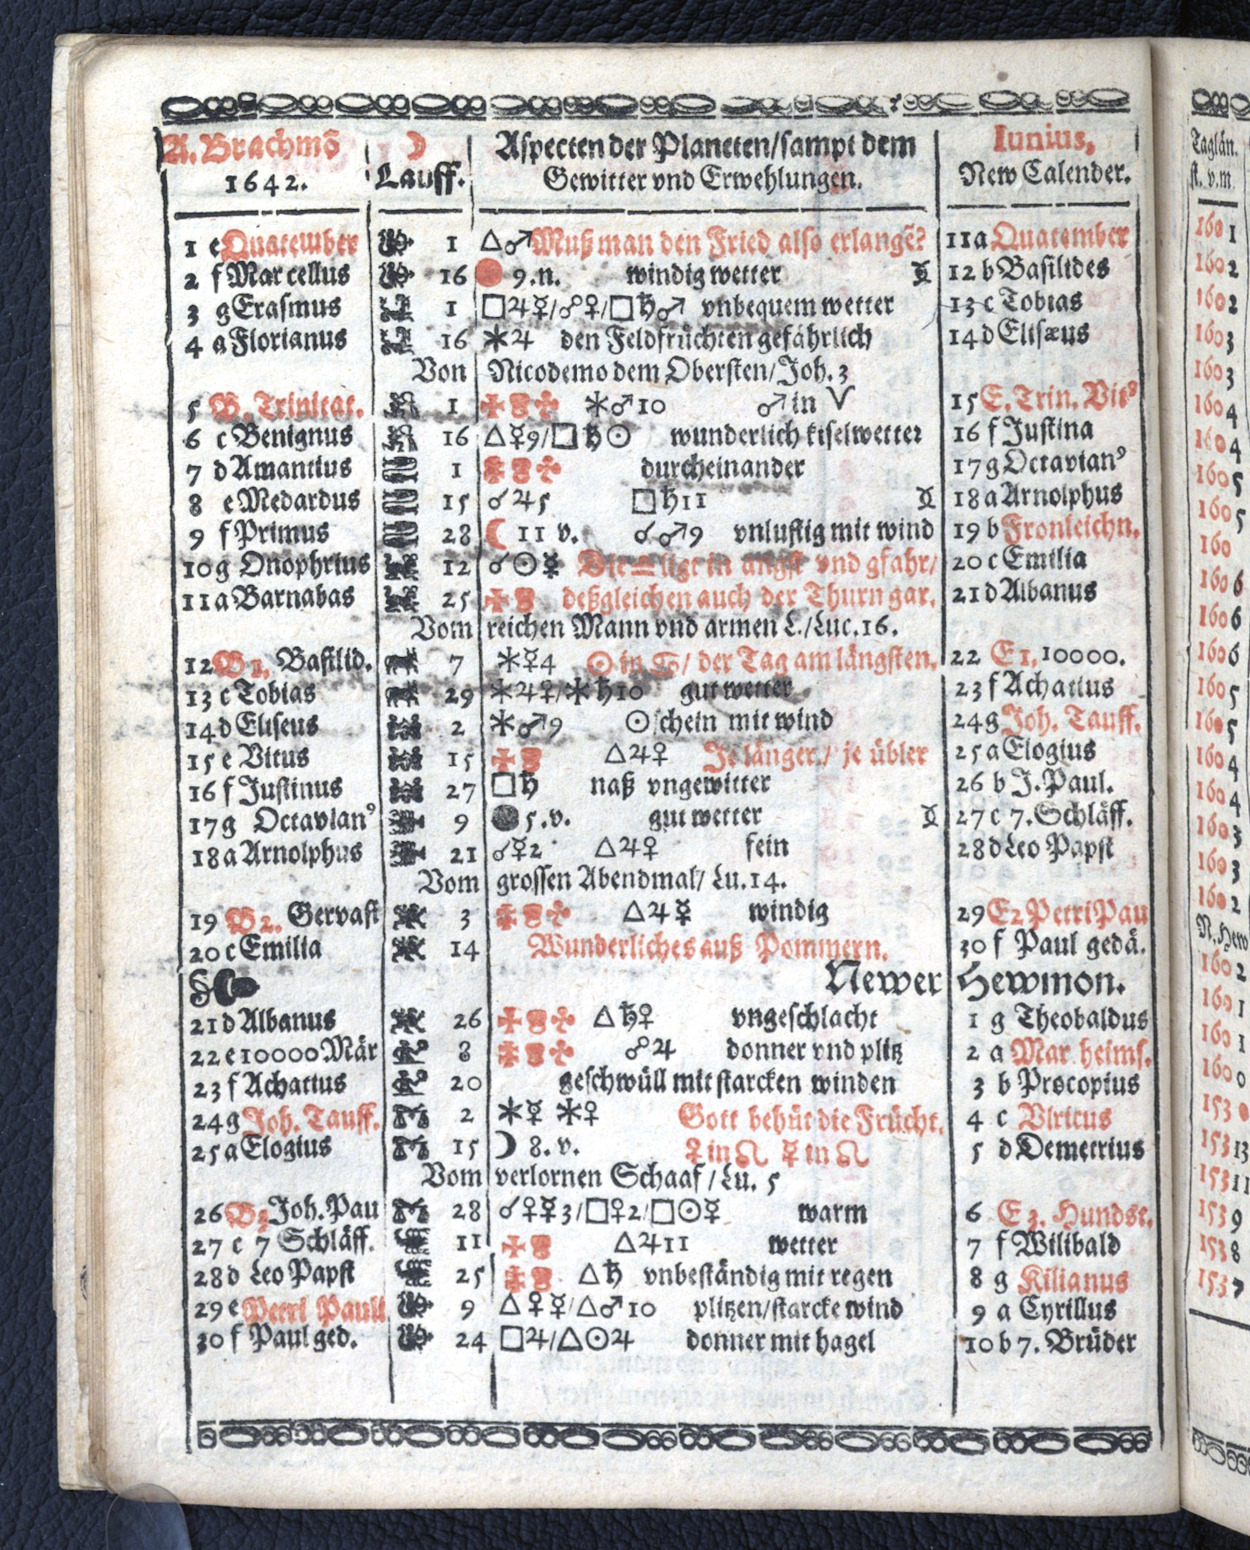 A. Brachmõ ☽ Aspecten der Planeten/sampt dem Iunius,
1642. Lauff. Gewitter vnd Erwehlungen. New Calender.
1 e Quatember 1 △♂ Muß man den Fried also erlangē? 11 a Quatember
2 f Marcellus 16 9.n. windig wetter 12 b Basilides
3 g Erasmus 1 □♃☿/☍♀/□♄♂ vnbequem wetter 13 c Tobias
4 a Florianus 16 ✶♃ den Feldfrüchten gefährlich 14 d Elisæus
Von Nicodemo dem Obersten/Joh. 3
5 B. Trinitat. 1 ✶♂10 ♂ in ♈ 15 E. Trin. Vitꝰ
6 c Benignus 16 △☿9/□♄☉ wunderlich kiselwetter 16 f Justina
7 d Amantius 1 durcheinander 17 g Octavianꝰ
8 e Medardus 15 ☌♃5 □♄11 18 a Arnolphus
9 f Primus 28 ☾ 11 v. ☌♂9 vnlustig mit wind 19 b Fronleichn.
10 g Onophrius 12 ☌☉☿ Die ligt in angst vnd gfahr/ 20 c Emilia
11 a Barnabas 25 deßgleichen auch der Thurn gar. 21 d Albanus
Vom reichen Mann vnd armen L./Luc. 16.
12 B 1. Basilid. 7 ✶☿4 ☉ in ♋/ der Tag am längsten. 22 E 1. 10000.
13 c Tobias 29 ✶♃♀/✶♄10 gut wetter 23 f Achatius
14 d Eliseus 2 ✶♂9 ☉schein mit wind 24 g Joh. Tauff.
15 e Vitus 15 △♃♀ Je länger/ je übler 25 a Elogius
16 f Justinus 27 □♄ naß vngewitter 26 b J. Paul.
17 g Octavianꝰ 9 5.v. gut wetter 27 c 7. Schläff.
18 a Arnolphus 21 ☌☿2 △♃♀ fein 28 d Leo Papst
Vom grossen Abendmal/ Lu. 14.
19 B 2. Gervast 3 △♃☿ windig 29 E 2 Petri Pau
20 c Emilia 14 Wunderliches auß Pommern. 30 f Paul gedä.
Newer Hewmon.
21 d Albanus 26 △♄♀ vngeschlacht 1 g Theobaldus
22 e 10000 Mär 8 ☍♃ donner vnd plitz 2 a Mar. heims.
23 f Achatius 20 geschwüll mit starcken winden 3 b Procopius
24 g Joh. Tauff. 2 ✶☿ ✶♀ Gott behüt die Frücht. 4 c Vlricus
25 a Elogius 15 ☽ 8.v. ♀ in ♌ ☿ in ♌ 5 d Demetrius
Vom verlornen Schaaf/Lu. 5
26 B 3 Joh. Pau 28 ☌♀☿3/□♀2/□☉☿ warm 6 E 3. Hundst.
27 c 7 Schläff. 11 △♃11 wetter 7 f Wilibald
28 d Leo Papst 25 △♄ vnbeständig mit regen 8 g Kilianus
29 e Petri Pauli 9 △♀☿/△♂10 plitzen/starcke wind 9 a Cyrillus
30 f Paul ged. 24 □♃/△☉♃ donner mit hagel 10 b 7. Brüder
Taglän.
st. v.m.
160 1
160 2
160 2
160 3
160 3
160 4
160 4
160 5
160 5
160
160 6
160 6
160 6
160 5
160 5
160 4
160 4
160 3
160 3
160 2
N. Hew
160 2
160 1
160 1
160 0
153
153 13
153 11
153 9
153 8
153 7